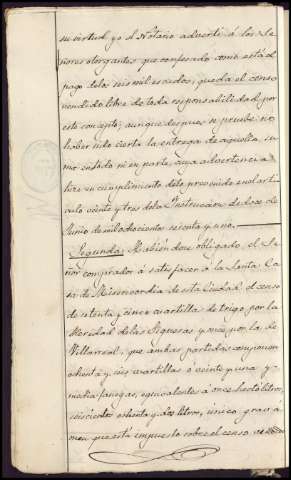 su virtud yo el Notario advertí á los Se-
ñores otorgantes que confesado como está el
pago de los seis mil escudos, queda el censo
vendido libre de toda responsabilidad por
este concepto; aunque despues se pruebe no
haber sido cierta la entrega de aquella su-
ma en todo ni en parte, cuya advertencia
hice en cumplimiento de lo prevenido en el artí-
culo veinte y tres de la Instruccion de doce de
Junio de mil ochocientos sesenta y uno.
Segunda: Habiéndose obligado, el Se-
ñor comprador á satisfacer á la Santa Ca-
sa de Misericordia de esta Ciudad el censo
de setenta y cinco cuartillas de trigo por la
Heredad de las Higueras y once por la de
Villarreal, que ambas partidas componen
ochenta y seis cuartillas ó veinte y una y
media fanegas, equivalente á once hectólitros,
seiscientos ochenta y dos litros, única gravá-
men que está impuesto sobre el censo